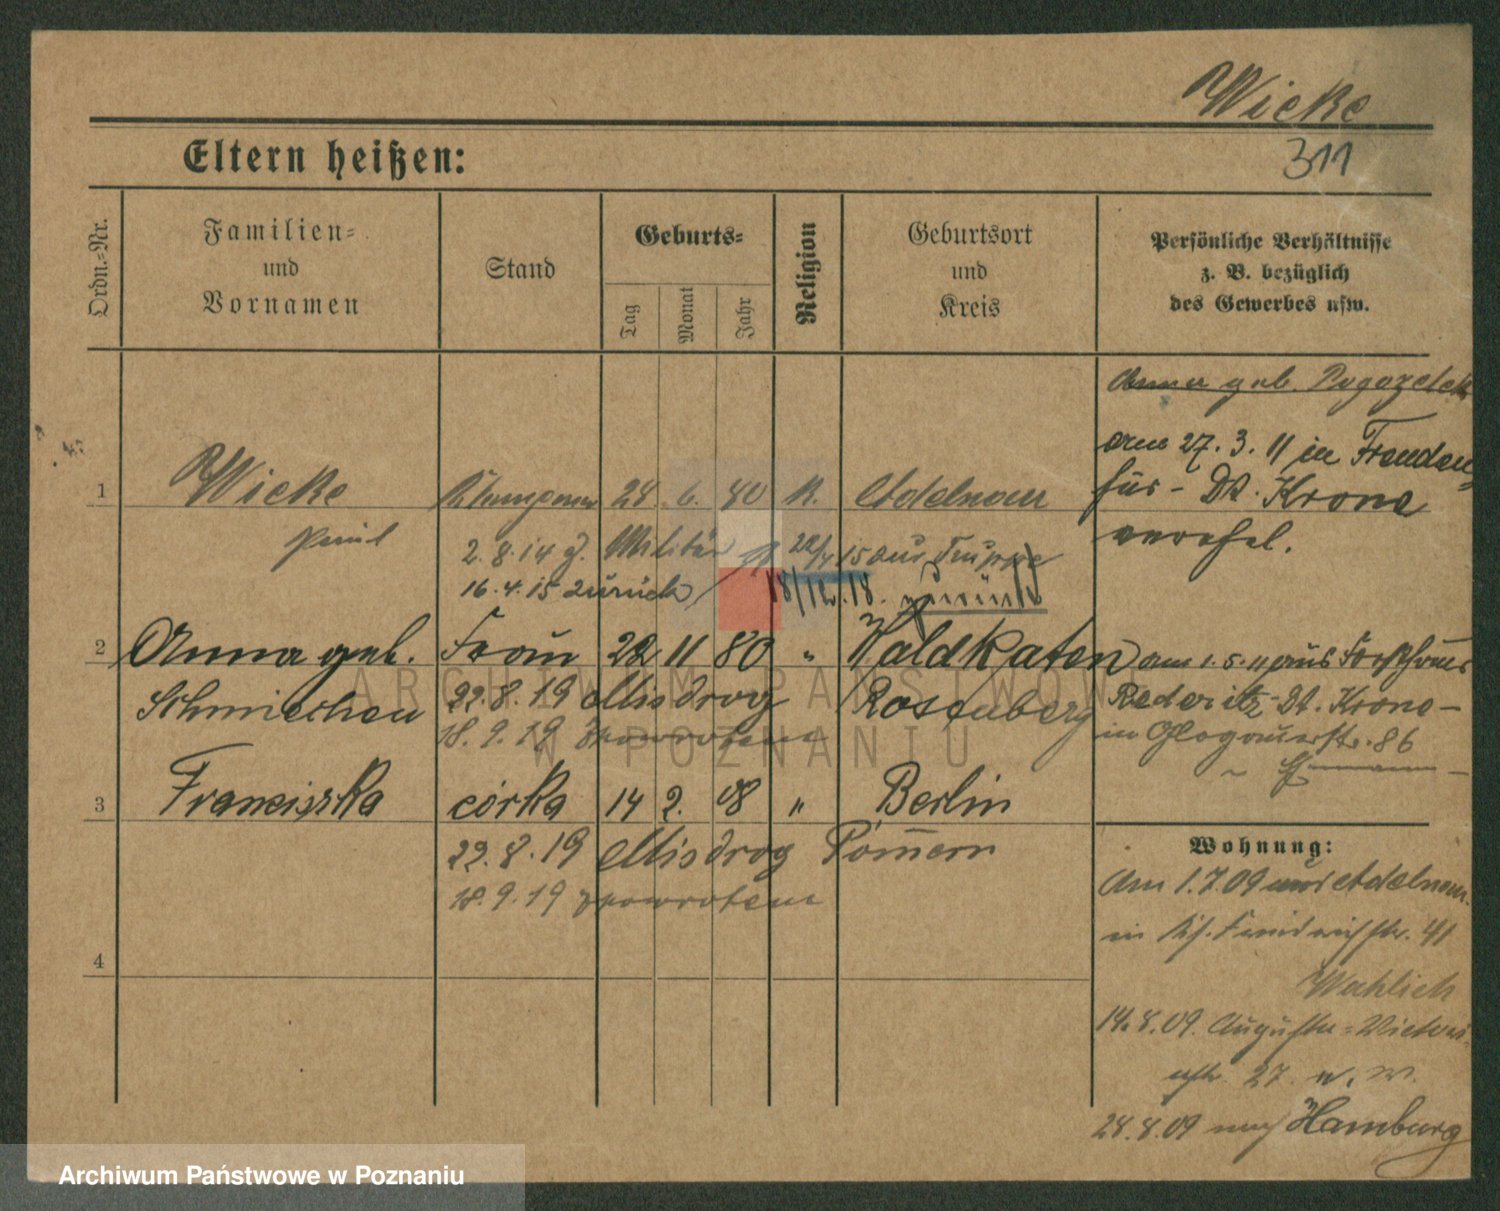 Wicke
311
Eltern heißen:
Ordn.-Nr.
Familien-
und
Vornamen
Stand
Geburts-
Tag
Monat
Jahr
Religion
Geburtsort
und
Kreis
Persönliche Verhältnisse
z. B. bezüglich
des Gewerbes usw.
Anna geb.
am 27. 3. 11 in Freuden
fier - Dt. Krone
verehel.
1 Wicke 28 6. 80 K. Adelnau
Paul
2. 8. 14 z. Militär 22/4 15 aus Truppe
16. 4. 15 zurück 18/12. 18. zurück
2 Anna geb. Frau 22 11 80 " Waldkaten am 1. 5. 11 aus Forsthaus
Schmiechen 22. 8. 19 Misdroy Rosenberg Rederitz Dt. Krone -
18. 9. 19 zpowrotem in Glogauerstr. 86
3 Franciszka córka 14 2. 08 " Berlin
22. 8. 19 Misdroy Pommern
18. 9. 19 zpowrotem
4
Wohnung:
Am 1. 7. 09 aus Adelnau
in 41
14. 8. 09. Augusta-Victoria
str. 27
28. 8. 09 nach Hamburg
ARCHIWUM PAŃSTWOWE
W POZNANIU
Archiwum Państwowe w Poznaniu